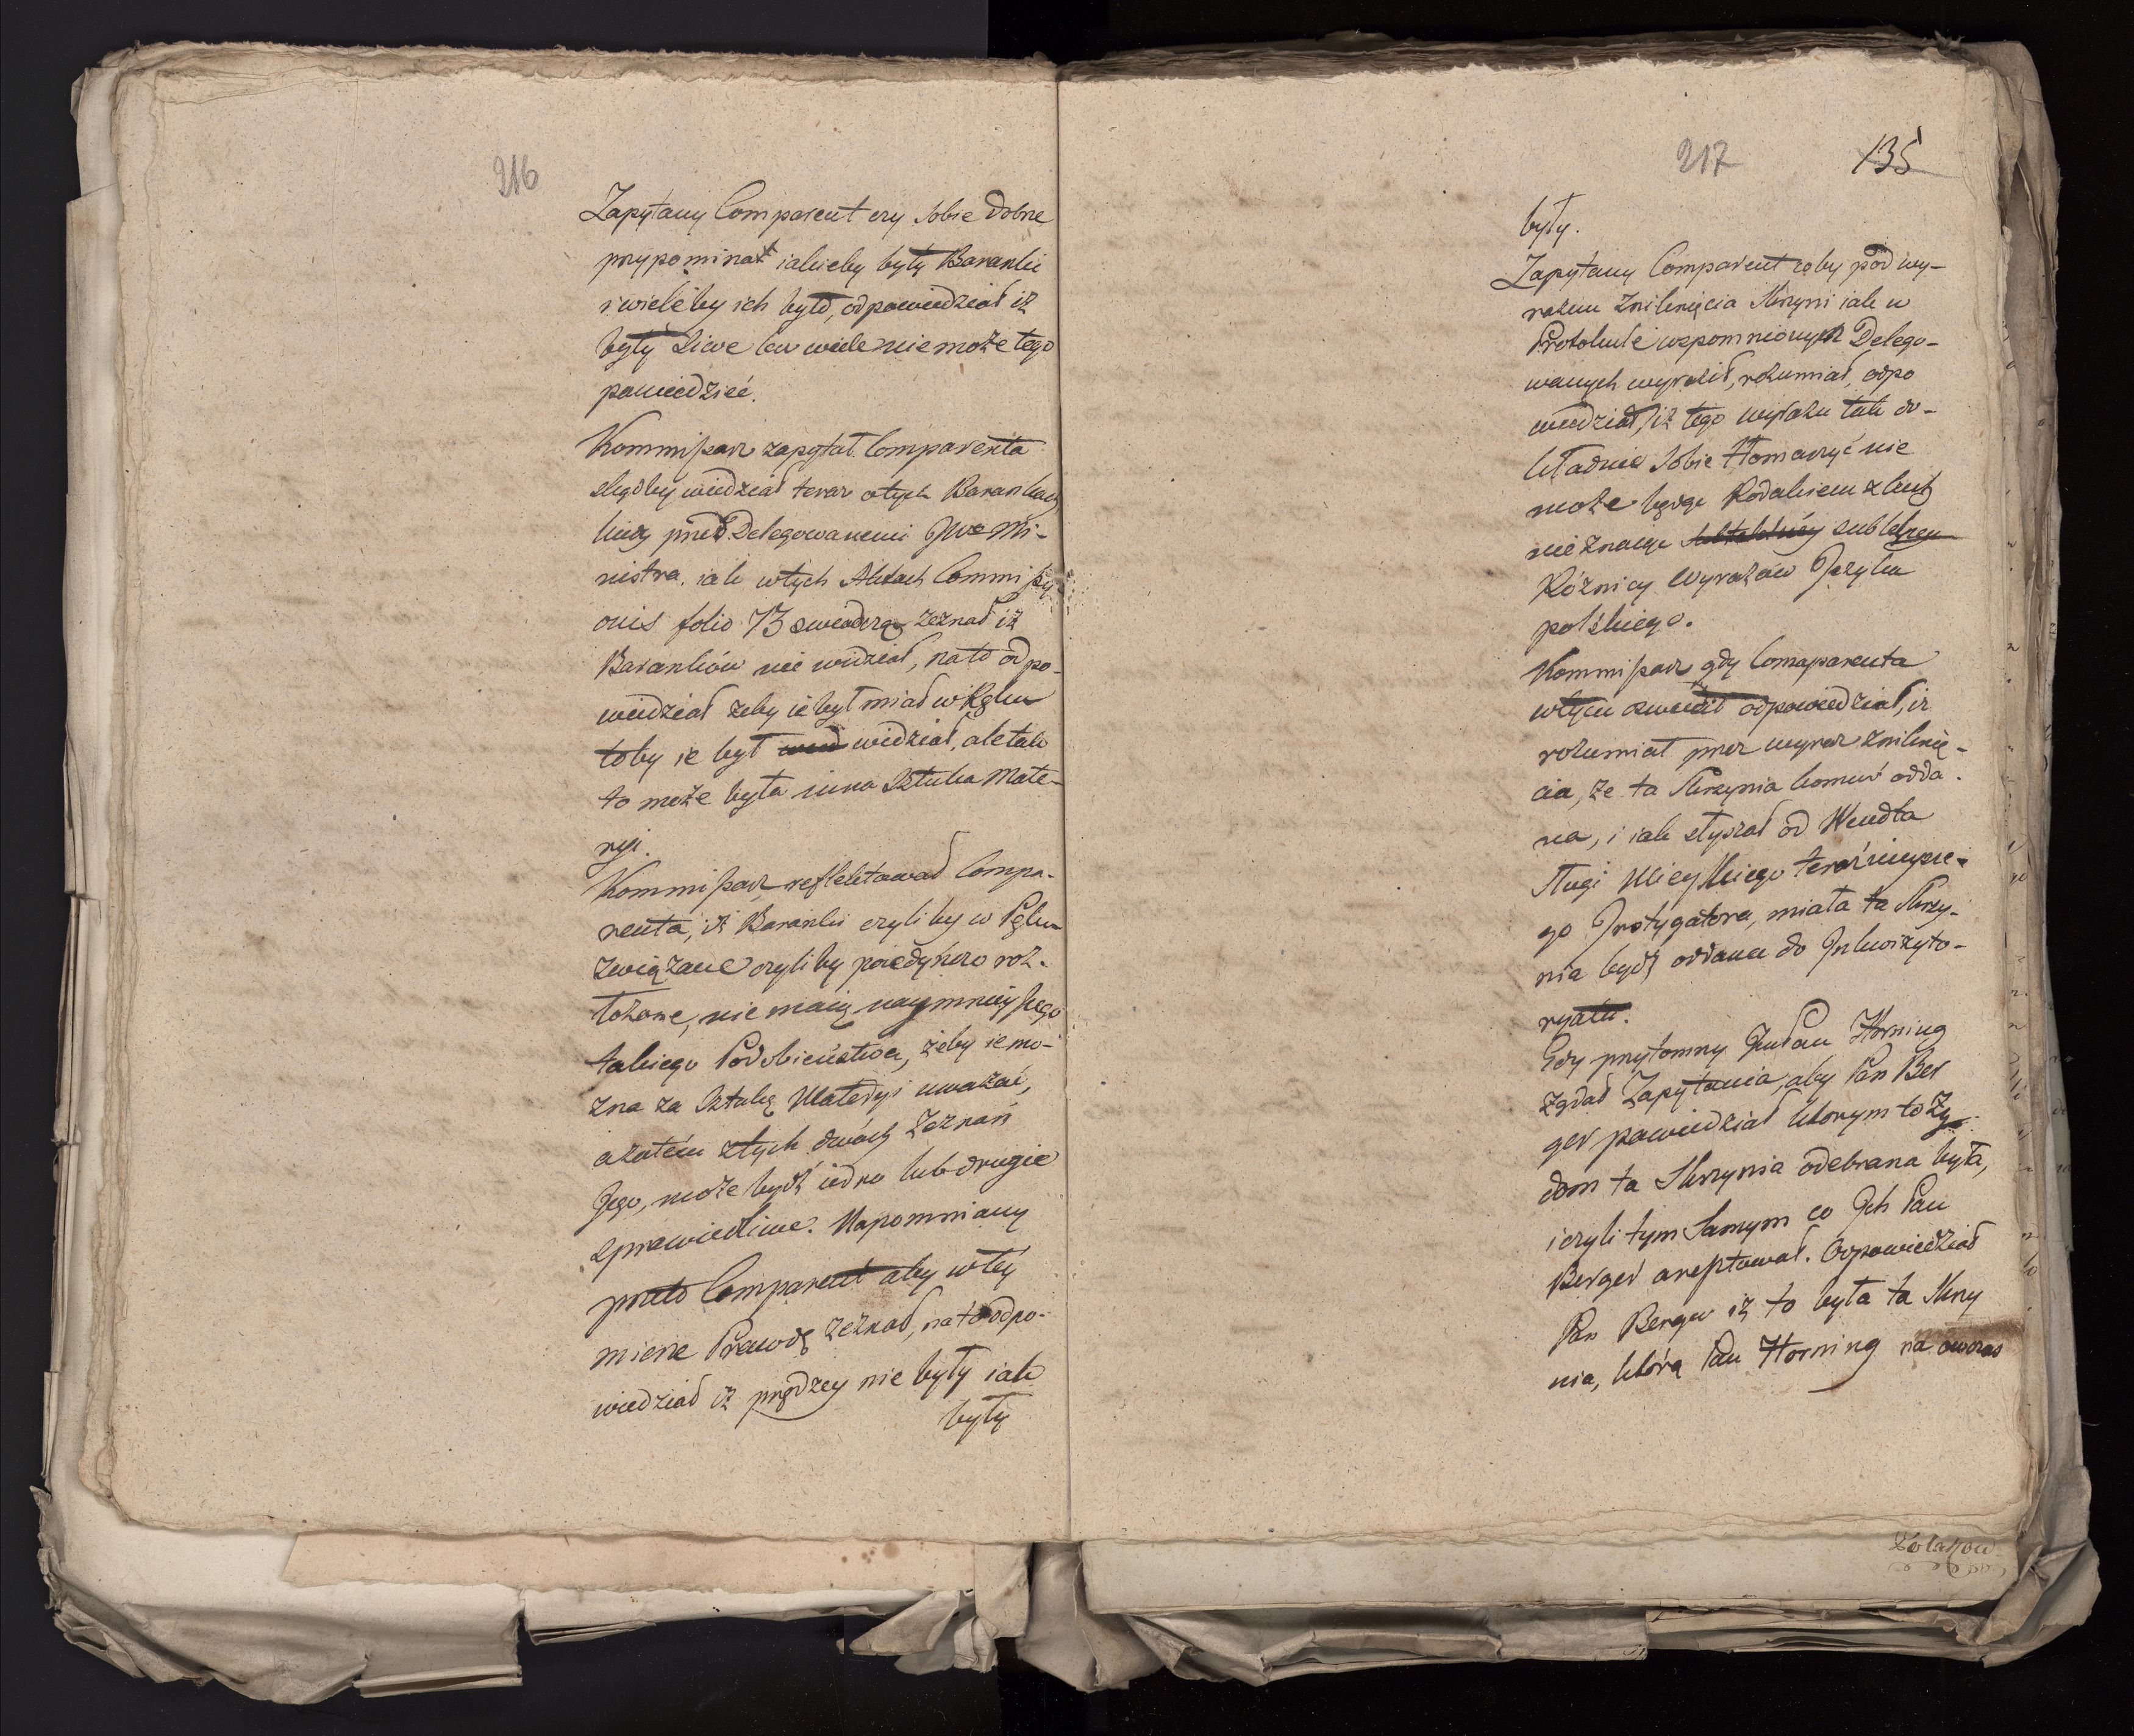 216
Zapytany Comparent czy sobie dobrze
przypomina iakieby były Baranki
i wieleby ich było, odpowiedział iż
były Siwe lecz wiele nie może tego
powiedzieć.
Kommißarz zapytał Comparenta
skądby wiedział teraz o tych Barankach
kiedy przed Delegowanemi JWo Mi-
nistra, iak w tych Aktach Commißy
onis folio 73 swiadczą zeznał iż
Baranków nie widział, na to odpo-
wiedział żeby ie był miał w Ręku
toby ie był widział, ale tak
to może była inna Sztuka Mate-
ryi.
Kommißarz reflektował Compa-
renta, iż Baranki czyli by w Pęku
związane czyli by poiedyńczo roz-
łożone, nie maią naymnieyßego
takiego Podobieństwa, żeby ie mo-
żna za Sztukę Materyi uważać,
a zatém z tych dwóch Zeznań
Jego, może bydź iedno lub drugie
sprawiedliwe. Napomniany
przeto Comparent aby w téy
mierze Prawdę zeznał, na to odpo-
wiedział iż prędzey nie były iak
były
217
135
były.
Zapytany Comparent coby pod wy-
razem Zniknięcia Skrzyni iak w
Protokule wspomnionym Delego-
wanych wyraził, rozumiał, odpo
wiedział, iż tego wyrazu tak do-
kładnie Sobie tłomaczyć nie
może będąc Rodakiem z kąd
nie znaiąc subtelney
Róznicy Wyrazów Języka
polskiego.
Kommißarz gdy Comaparenta
w tym odpowiedział, iż
rozumiał przez wyraz Zniknię-
cia, że ta Skrzynia komuś odda-
na, i iak słyszał od Wendta
Sługi Mieyskiego teraźnieysze-
go Instygatora, miała ta Skrzy-
nia bydź oddana do Inkwizyto-
ryatu.
Gdy przytomny Pan Horning
żądał Zapytania, aby Pan Ber
ger powiedział którym to Ży-
dom ta Skrzynia odebrana była,
i czyli tym Samym co Ich Pan
Berger aresztował. Odpowiedział
Pan Berger iż to była ta Skrzy
nia, którą Pan Horning na owczas